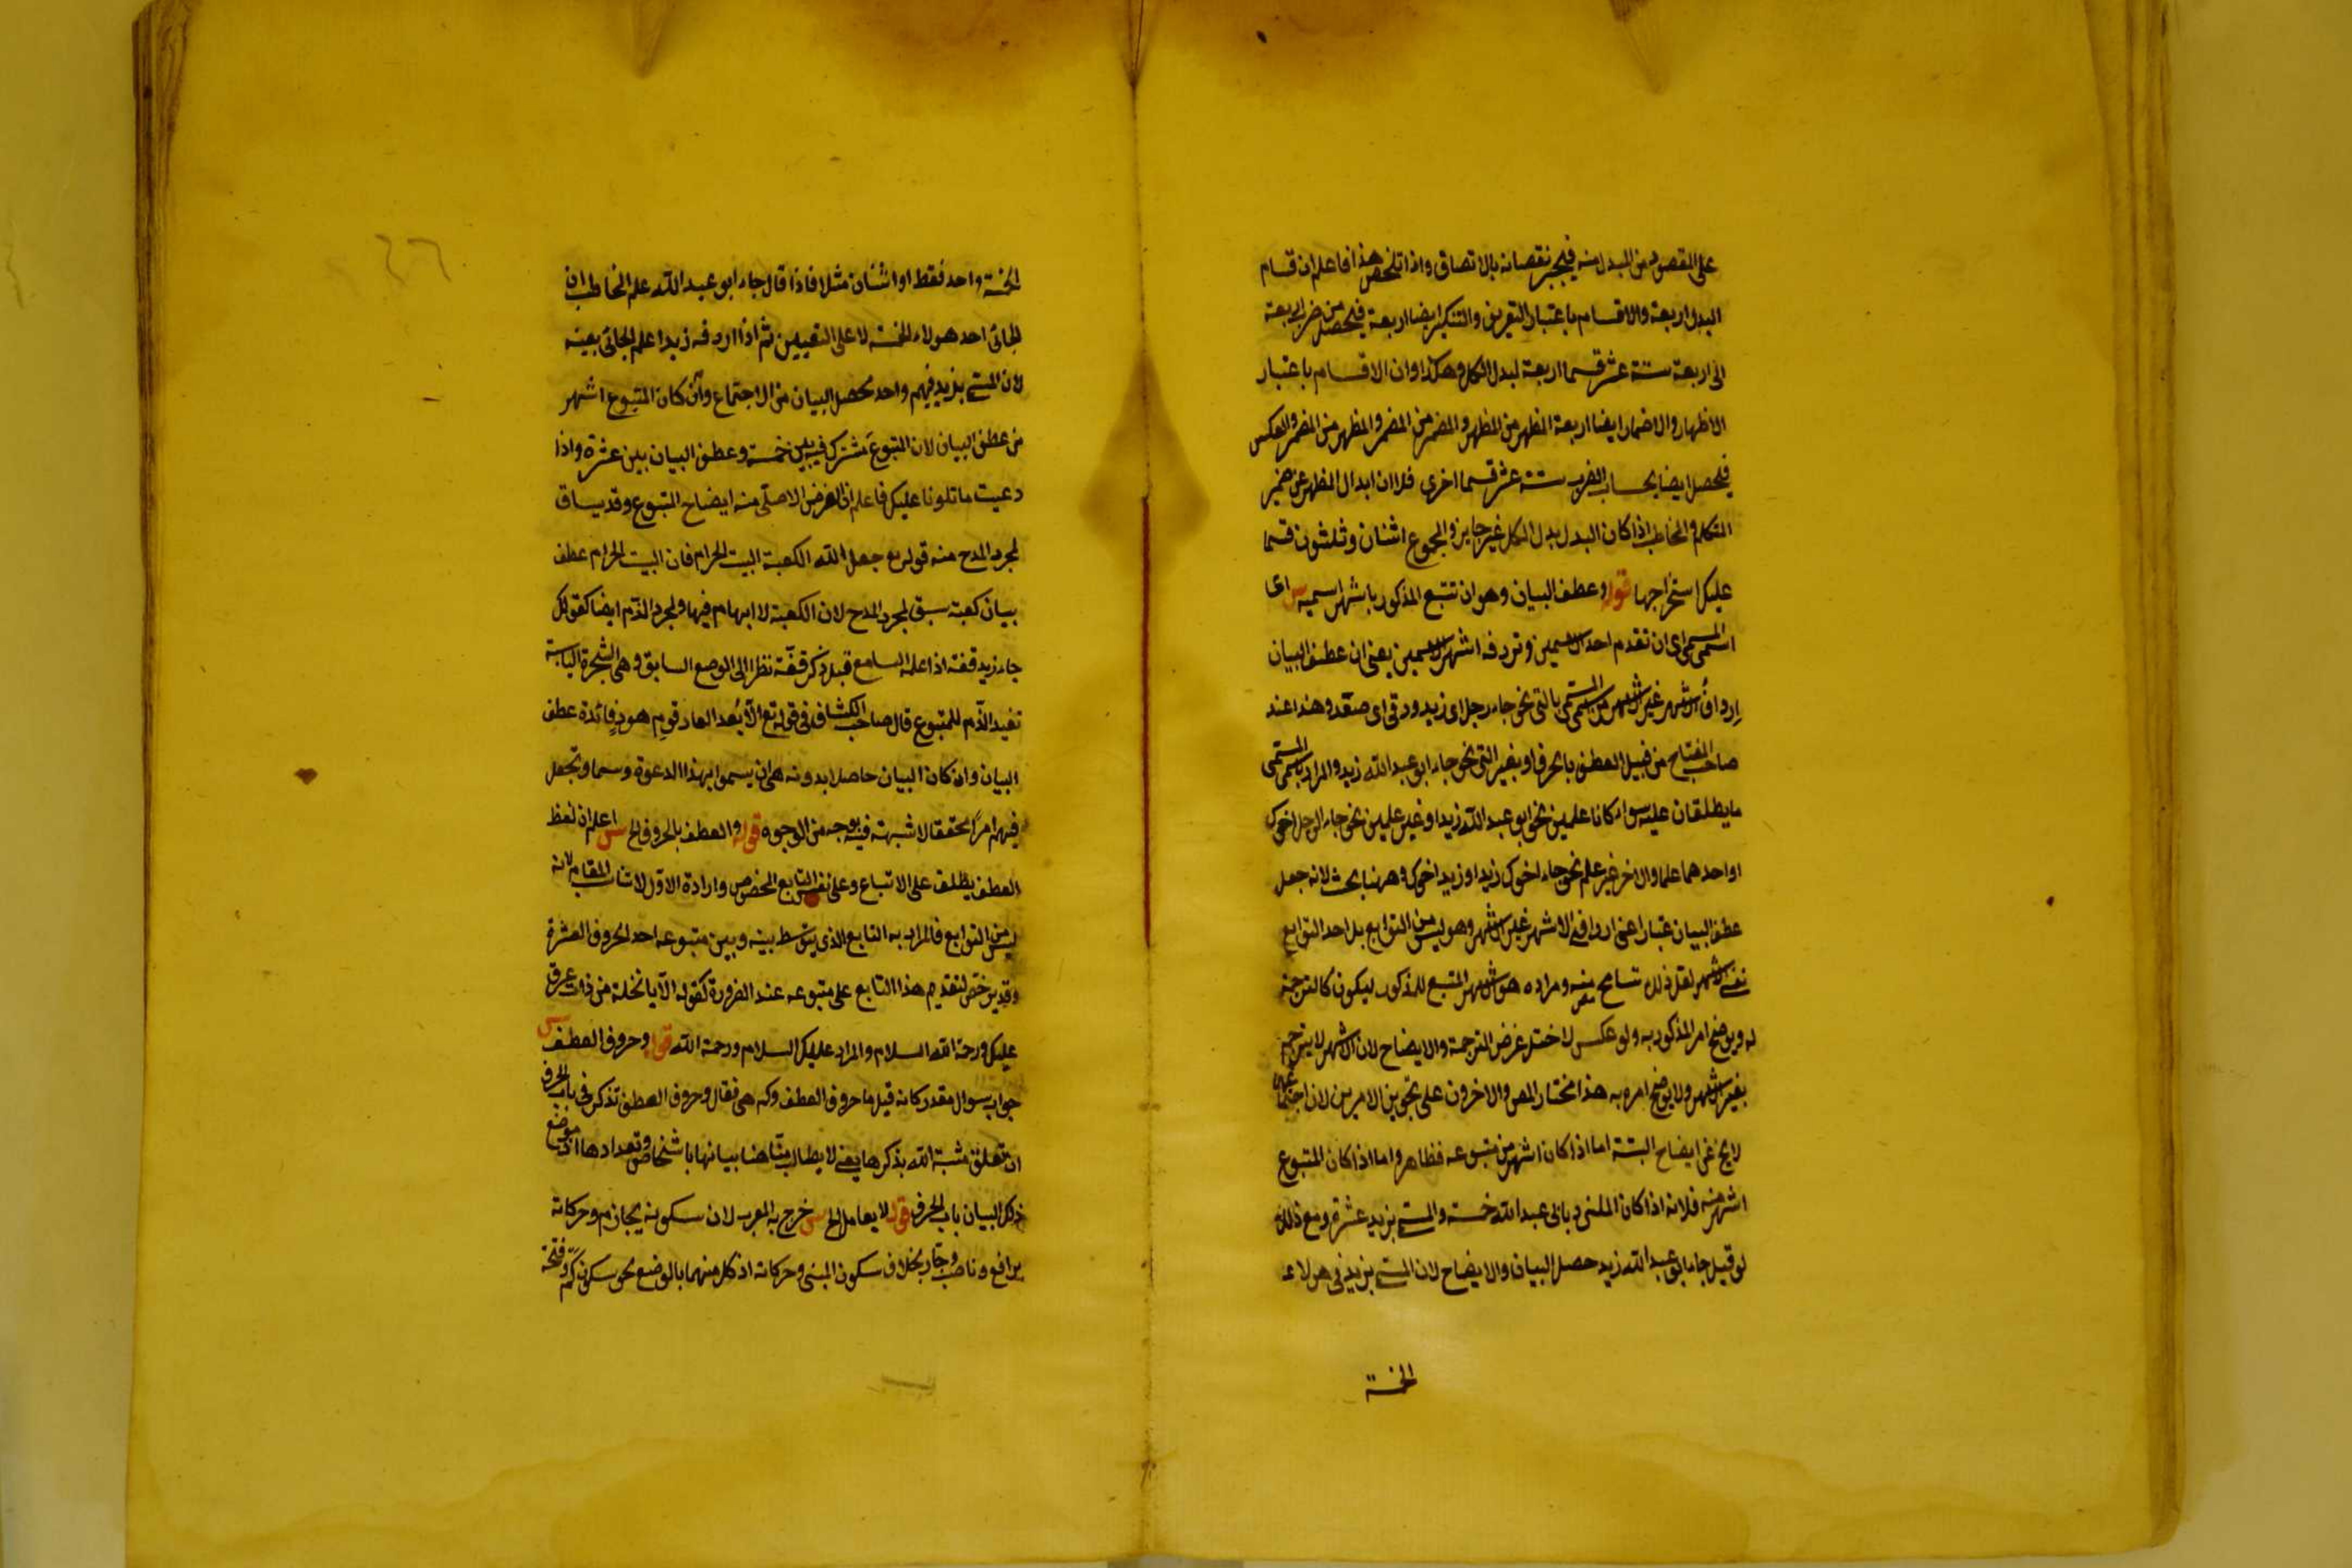 على المقصود من المبدل منه فينجبر نقصانه بالاتصاق واذا تلخص هذا فاعلم ان قسام
البدل اربعة والاقسام باعتبار التعريف والتنكير ايضا اربعة فيحصل من ضرب اربعة
الى اربعة ستة عشر قسما اربعة لبدل الكل وهكذا وان الاقسام باعتبار
الاظهار والاضمار ايضا اربعة المظهر من المظهر والمضمر من المضمر والمظهر من المضمر والعكس
فيحصل ايضا بحساب الضرب ستة عشر قسما اخرى فلا ان ابدال المظهر عن ضمير
المتكلم والمخاطب اذا كان البدل بدل الكل غير جايز والمجموع اثنان وثلثون قسما
عليك استخراجها قوله وعطف البيان وهو ان تتبع المذكور باشهر اسميه س اى
اسمى المسمى اى ان تقدم احد الاسمين وتردفه اشهر الاسمين يعنى ان عطف البيان
ارداف الاشهر غير الاشهر من اسمى المسمى بالتى نحو جاء رجل اى زيد وهذا عند
صاحب المفتاح من قبيل العطف بالحرف او بغير التى نحو جاء ابو عبد الله زيد والمراد باسمى المسمى
ما يطلقان عليه سواء كانا علمين نحو ابو عبد الله زيد او غير علمين نحو جاء الرجل اخوك
او احدهما علما والاخر غير علم نحو جاء اخوك زيد او زيد اخوك وههنا بحث لانه جعل
عطف البيان عبارة عن ارداف الاشهر غير الاشهر وهو ليس من التوابع بل احد التوابع
نفس الاشهر لعل ذلك تسامح منه ومراده هو الاشهر المتبع للمذكور ليكون كالترجمة
له ويوضح امر المذكور به ولو عكس لاختل غرض الترجمة والايضاح لان الاشهر لا يترجم
بغير الاشهر ولا يوضح امره به هذا مختار المص والاخرون على تجويز الامرين لان اجتماعهما
لا يخ عن ايضاح البتة اما اذا كان اشهر من متبوعه فظاهر واما اذا كان المتبوع
اشهر منه فلانه اذا كان المكنى بابى عبد الله خمسة والمسمى بزيد عشرة ومع ذلك
لو قيل جاء ابو عبد الله زيد حصل البيان والايضاح لان المسمى بزيد فى هؤلاء
الخمسة
الخمسة واحد فقط او اثنان مثلا فاذا قال جاء ابو عبد الله علم المخاطب ان
الجائى احد هولاء الخمسة لا على التعيين ثم اذا اردفه زيدا علم الجائى بعينه
لان المسمى بزيد فيهم واحد فحصل البيان من الاجتماع وان كان المتبوع اشهر
من عطف البيان لان المتبوع مشترك فيه بين خمسة وعطف البيان بين عشرة واذا
دعيت ما تلونا عليك فاعلم ان الغرض الاصلى منه ايضاح المتبوع وقد يساق
لمجرد المدح منه قوله تع جعل الله الكعبة البيت الحرام فان البيت الحرام عطف
بيان كعبة سبق لمجرد المدح لان الكعبة لا ابهام فيها ولمجرد الذم ايضا كقولك
جاء زيد قفة اذا علمه السامع قبل ذكر قفة نظرا الى الوضع السابق وهى الشجرة اليابسة
تفيد الذم للمتبوع قال صاحب الكشاف فى قوله تع الا بعدا لعاد قوم هود فائدة عطف
البيان وان كان البيان حاصلا بدونه هى ان يسموا بهذا الدعوة وسما وتجعل
فيهم امرا محققا لا شبهة فيه بوجه من الوجوه قوله والعطف بالحروف الخ س اعلم ان لفظ
العطف يطلق على الاتباع وعلى نفس التابع المخصوص وارادة الاول لا تناسب المقام لانه
ليس من التوابع فالمراد به التابع الذى يتوسط بينه وبين متبوعه احد الحروف العشرة
وقد يرخص لتقديم هذا التابع على متبوعه عند الضرورة كقوله الا يا نخلة من ذات عرق
عليك ورحمة الله السلام والمراد عليك السلام ورحمة الله قوله وحروف العطف س
جواب سوال مقدر كانه قيل ما حروف العطف وكم هى فقال وحروف العطف تذكر فى باب الحرف
ان تعلق مشية الله بذكرها يعنى لا يطالب منا هنا بيانها باشخاص وتعدادها اذ موضع
ذكر البيان باب الحرف قوله لا يعامل الخ س خرج به المعرب لان سكونه بجازم وحركاته
برافع وناصب وجار بخلاف سكون المبنى وحركاته اذ كل منهما بالوضع نحو سكون كم وفتحة